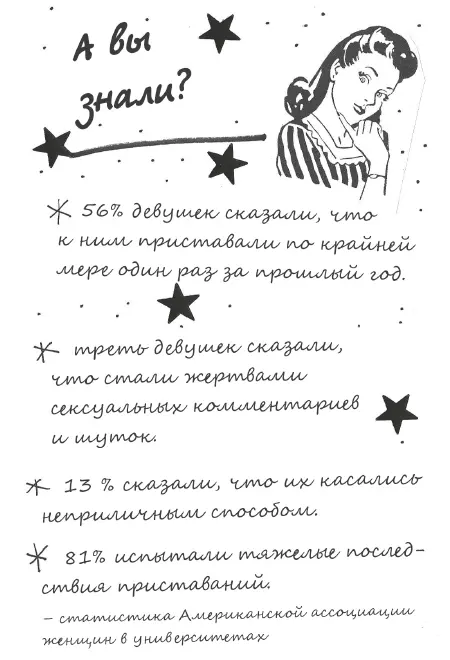 А вы
знали?
* 56% девушек сказали, что
к ним приставали по крайней
мере один раз за прошлый год.
* треть девушек сказали,
что стали жертвами
сексуальных комментариев
и шуток.
* 13 % сказали, что их касались
неприличным способом.
* 81% испытали тяжелые послед-
ствия приставаний.
– статистика Американской ассоциации
женщин в университетах